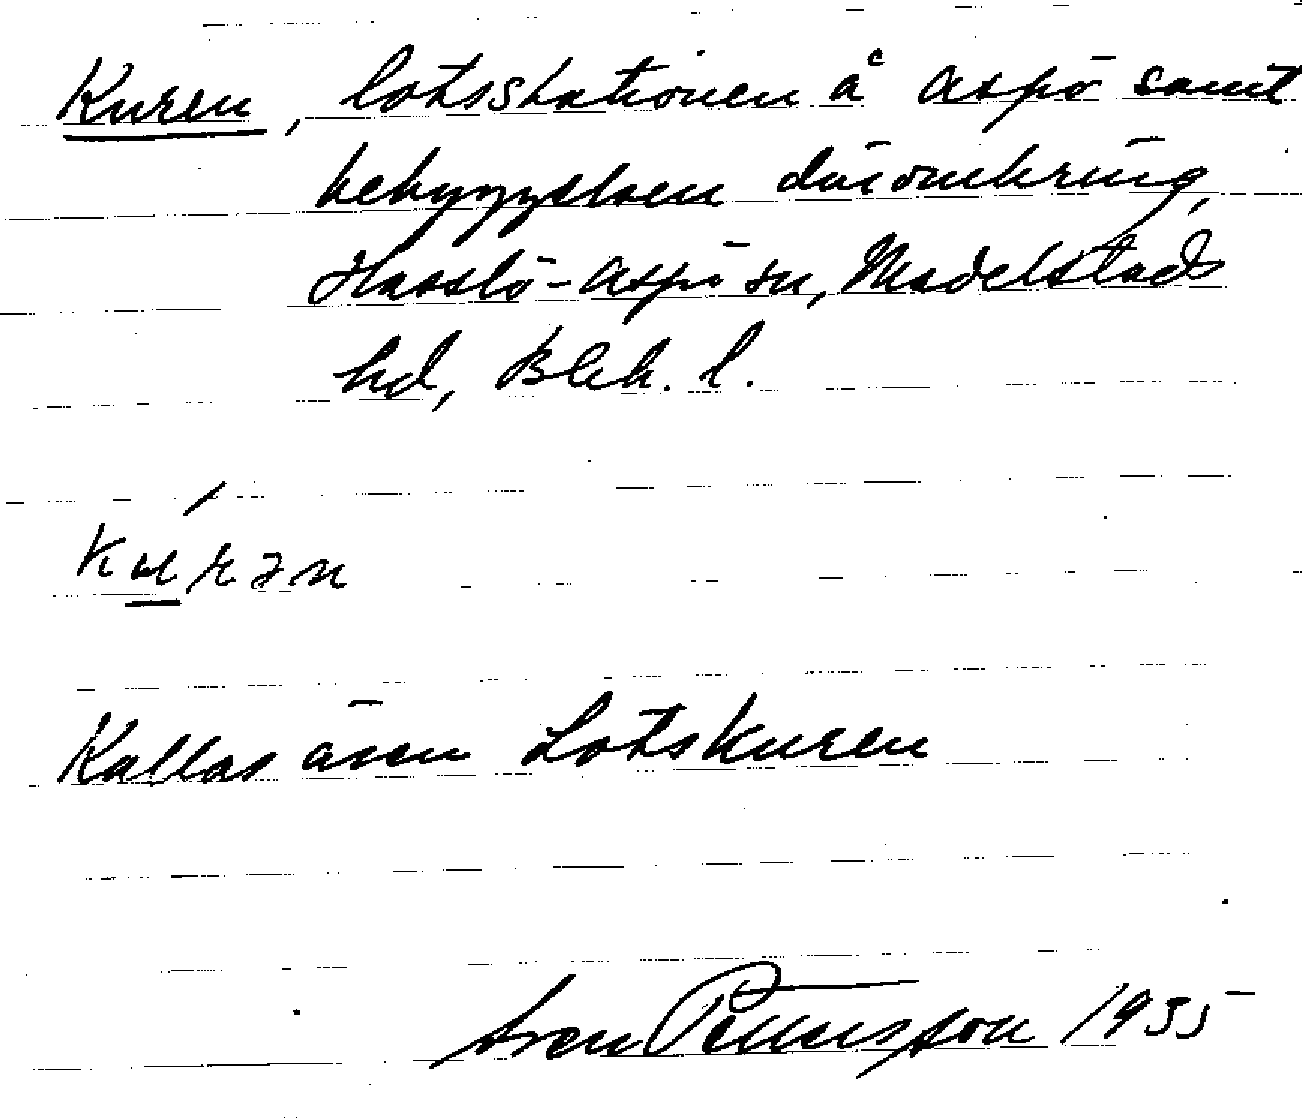 Kuren, lotsstationen å Aspö samt
bebyggelsen däromkring,
Hasslö-Aspö sn, Medelstads
hd, Blek. l.
kúrən
Kallas även Lotskuren
Sven Pettersson 1935